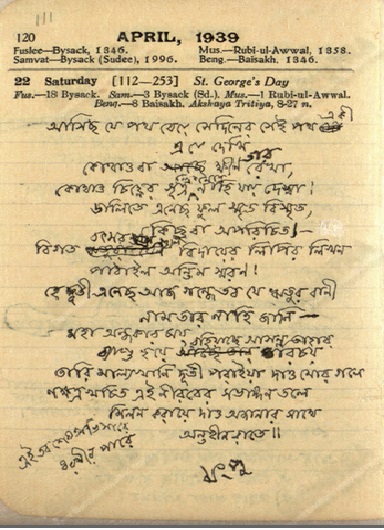 120 APRIL, 1939
Fuslee—Bysack, 1346. Mus.—Rubi-ul-Awwal, 1358.
Samvat—Bysack (Sudee), 1996. Beng.—Baisakh, 1346.
22 Saturday [112—253] St. George's Day
Fus.—18 Bysack. Sam.—3 Bysack (Sd.). Mus.—1 Rubi-ul-Awwal.
Beng.—8 Baisakh. Akshaya Tritiya, 8-27 m.
আসিছি যে পথ বেয়ে সেদিনের সেই পথ
এ যে দেখি
কোথাও বা ক্ষীণ তার রেখা,
কোথাও চিহ্নের সূত্র নাহি যায় দেখা!
ডালিতে এনেছ ফুল বিস্মৃত,
কিছু বা অপরিচিত।
বিগত বিদায়ের লিপির লিখন
অন্তিম স্মরণ!
হে দূতী এনেছ আজ গন্ধে তব যে ঋতুর বাণী
নাম তার নাহি জানি—
মহা অন্ধকার
পরিচয়
তারি মাল্যখানি দূতী পরাইয়া দাও মোর গলে
এই নীরবের তলে
মিলন করায়ে দাও অজানার সাথে
অন্তহীন রাতে॥